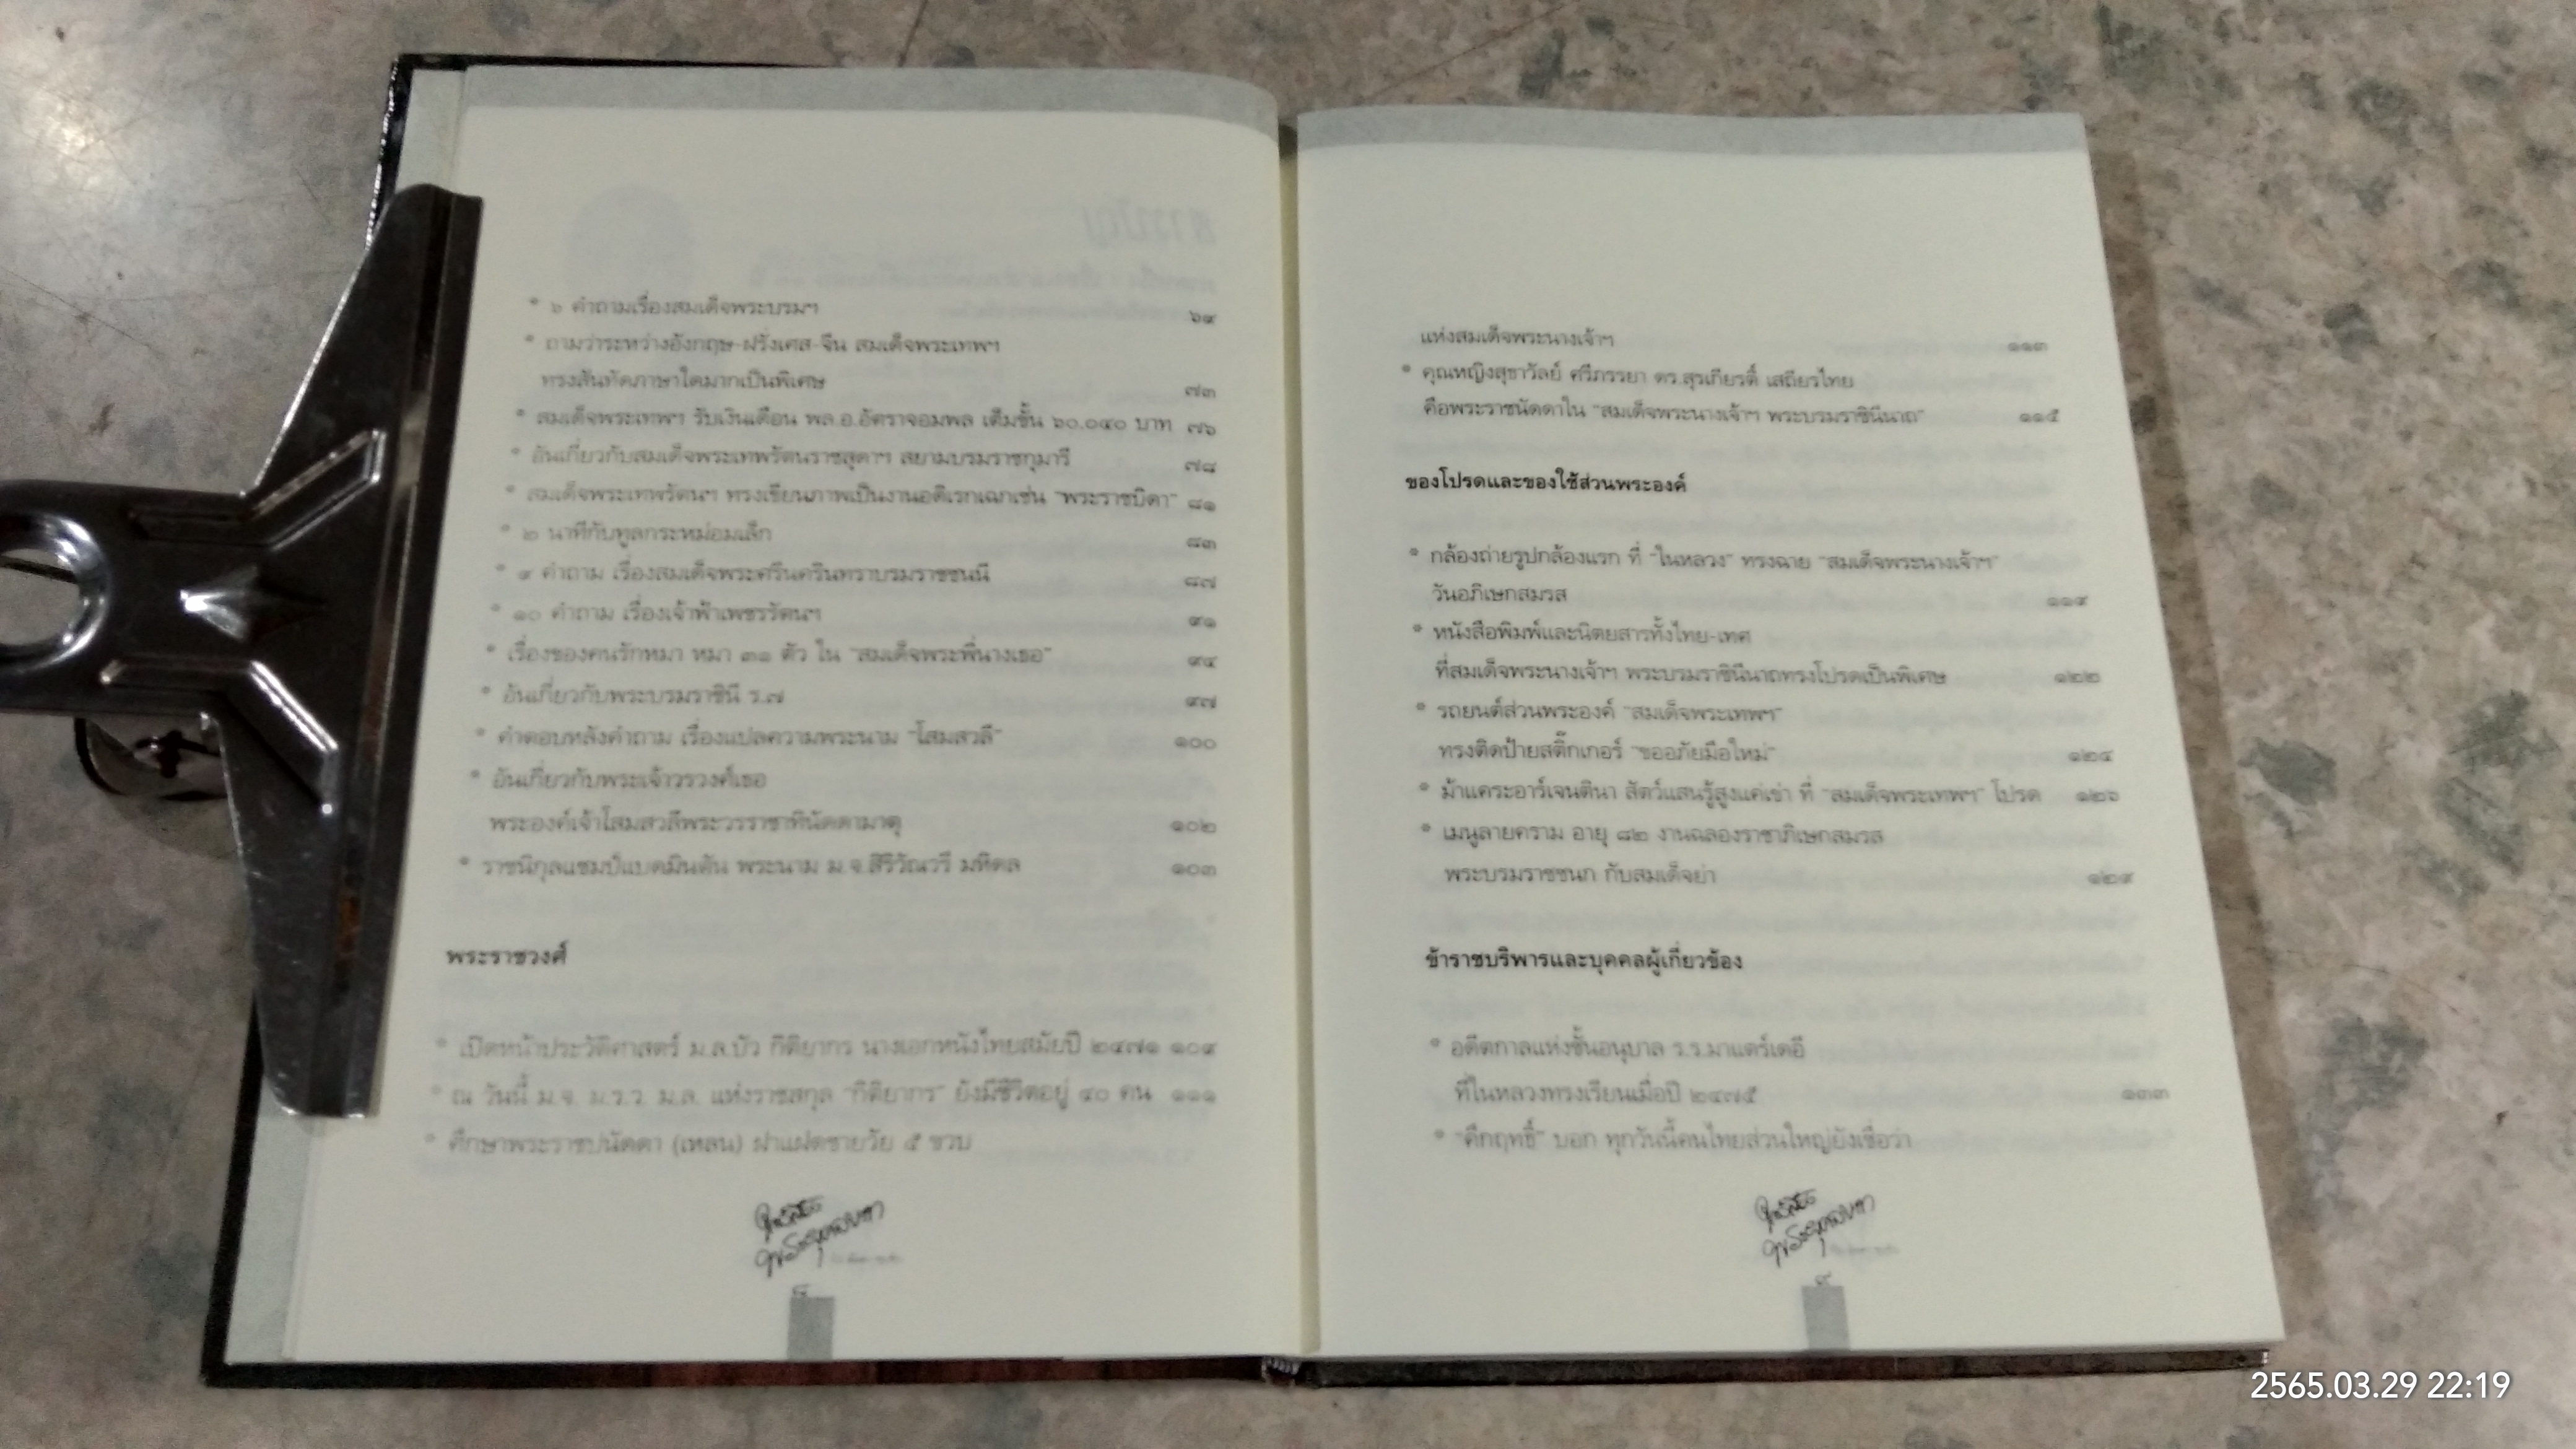 • ๖ คำถามเรื่องสมเด็จพระบรมฯ ๖๙
• ถามว่าระหว่างอังกฤษ-ฝรั่งเศส-จีน สมเด็จพระเทพฯ
ทรงสันทัดภาษาใดมากเป็นพิเศษ ๗๓
• สมเด็จพระเทพฯ รับเงินเดือน พล.อ.อัตราจอมพล เต็มขั้น ๖๐,๐๔๐ บาท ๗๖
• อันเกี่ยวกับสมเด็จพระเทพรัตนราชสุดาฯ สยามบรมราชกุมารี ๗๘
• สมเด็จพระเทพรัตนฯ ทรงเขียนภาพเป็นงานอดิเรกเฉกเช่น "พระราชบิดา" ๘๑
• ๒ นาทีกับทูลกระหม่อมเล็ก ๘๓
• ๙ คำถาม เรื่องสมเด็จพระศรีนครินทราบรมราชชนนี ๘๗
• ๑๐ คำถาม เรื่องเจ้าฟ้าเพชรรัตนฯ ๙๑
• เรื่องของคนรักหมา หมา ๓๑ ตัว ใน "สมเด็จพระพี่นางเธอ" ๙๔
• อันเกี่ยวกับพระบรมราชินี ร.๗ ๙๗
• คำตอบหลังคำถาม เรื่องแปลความพระนาม "โสมสวลี" ๑๐๐
• อันเกี่ยวกับพระเจ้าวรวงศ์เธอ
พระองค์เจ้าโสมสวลีพระวรราชาทินัดดามาตุ ๑๐๒
• ราชนิกุลแชมป์แบดมินตัน พระนาม ม.จ.สิริวัณวรี มหิดล ๑๐๓
พระราชวงศ์
• เปิดหน้าประวัติศาสตร์ ม.ล.บัว กิติยากร นางเอกหนังไทยสมัยปี ๒๔๗๑ ๑๐๙
• ณ วันนี้ ม.จ. ม.ร.ว. ม.ล. แห่งราชสกุล "กิติยากร" ยังมีชีวิตอยู่ ๔๐ คน ๑๑๑
• ศึกษาพระราชปนัดดา (เหลน) ฝาแฝดชายวัย ๕ ขวบ
แห่งสมเด็จพระนางเจ้าฯ ๑๑๓
• คุณหญิงสุชาวัลย์ ศรีภรรยา ดร.สุรเกียรติ์ เสถียรไทย
คือพระราชนัดดาใน "สมเด็จพระนางเจ้าฯ พระบรมราชินีนาถ" ๑๑๕
ของโปรดและของใช้ส่วนพระองค์
• กล้องถ่ายรูปกล้องแรก ที่ "ในหลวง" ทรงฉาย "สมเด็จพระนางเจ้าฯ"
วันอภิเษกสมรส ๑๑๙
• หนังสือพิมพ์และนิตยสารทั้งไทย-เทศ
ที่สมเด็จพระนางเจ้าฯ พระบรมราชินีนาถทรงโปรดเป็นพิเศษ ๑๒๒
• รถยนต์ส่วนพระองค์ "สมเด็จพระเทพฯ"
ทรงติดป้ายสติ๊กเกอร์ "ขออภัยมือใหม่" ๑๒๔
• ม้าแคระอาร์เจนตินา สัตว์แสนรู้สูงแค่เข่า ที่ "สมเด็จพระเทพฯ" โปรด ๑๒๖
• เมนูลายคราม อายุ ๘๒ งานฉลองราชาภิเษกสมรส
พระบรมราชชนก กับสมเด็จย่า ๑๒๙
ข้าราชบริพารและบุคคลผู้เกี่ยวข้อง
• อดีตกาลแห่งชั้นอนุบาล ร.ร.มาแตร์เดอี
ที่ในหลวงทรงเรียนเมื่อปี ๒๔๗๕ ๑๓๓
• "คึกฤทธิ์" บอก ทุกวันนี้คนไทยส่วนใหญ่ยังเชื่อว่า
2565.03.29 22:19